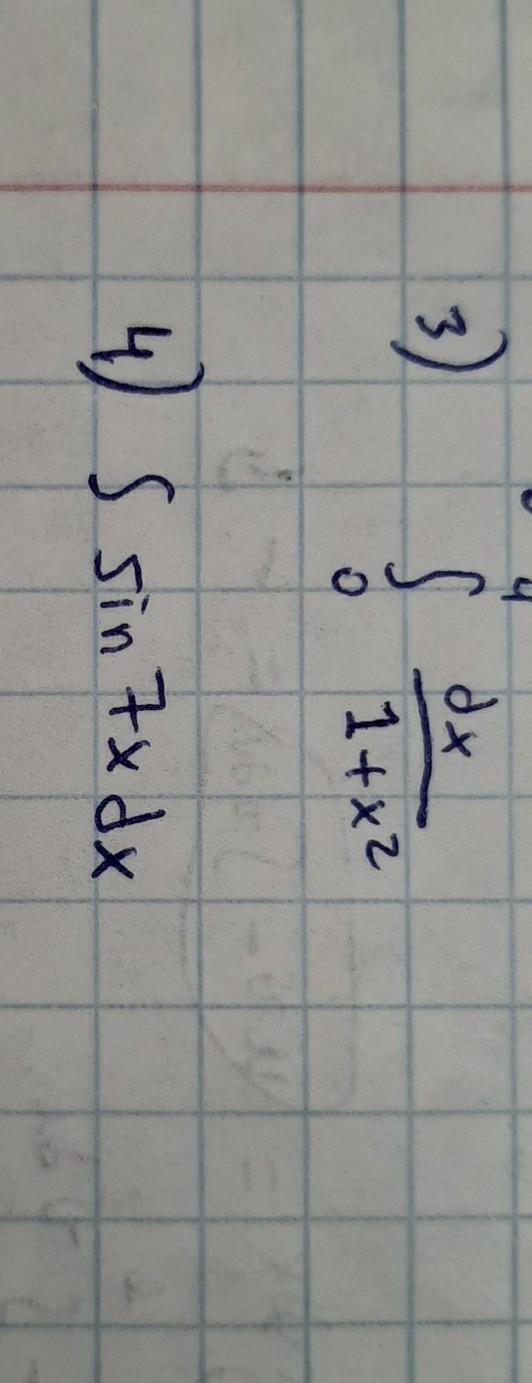 3) ∫₀⁴ dx / (1+x²)
4) ∫ sin 7x dx